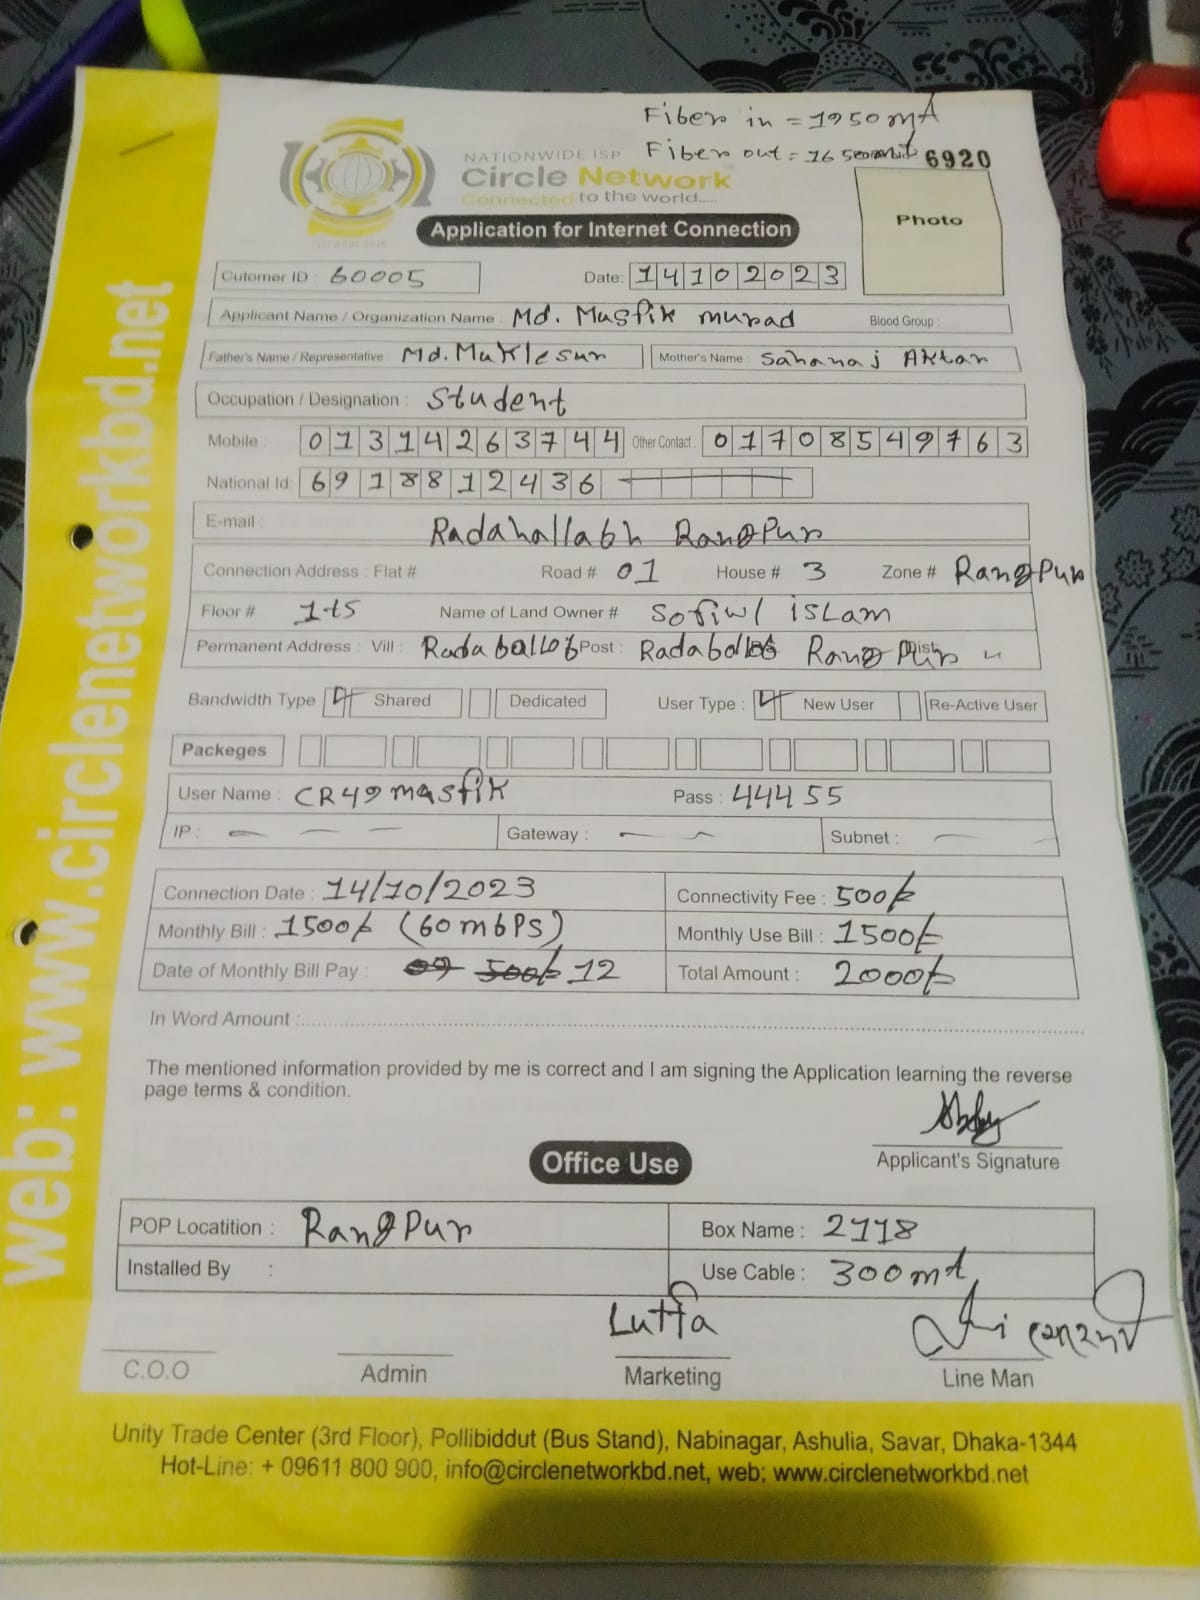 Fiber in = 1950 mt
Fiber out = 1650 mt 6920
NATIONWIDE ISP
Circle Network
Connected to the world.....
Photo
Application for Internet Connection
Cutomer ID : 60005 Date: 14102023
Applicant Name / Organization Name : Md. Masfik murad Blood Group :
Father's Name / Representative : Md. Muklesur Mother's Name : Sahanaj Aktar
Occupation / Designation : Student
Mobile : 01314263744 Other Contact : 01708549763
National Id: 6918812436
E-mail :
Radahallabh Rangpur
Connection Address : Flat # Road # 01 House # 3 Zone # Rangpur
Floor # 1-t5 Name of Land Owner # Sofiwl islam
Permanent Address : Vill : Radaballob Post : Radabollob Rangpur Dist
Bandwidth Type Shared Dedicated User Type : New User Re-Active User
Packeges
User Name : CR49masfik Pass : 44455
IP : Gateway : Subnet :
Connection Date : 14/10/2023 Connectivity Fee : 500/-
Monthly Bill : 1500/- (60mbPS) Monthly Use Bill : 1500/-
Date of Monthly Bill Pay : 09 500/- 12 Total Amount : 2000/-
In Word Amount :
The mentioned information provided by me is correct and I am signing the Application learning the reverse
page terms & condition.
Applicant's Signature
Office Use
POP Locatition : Rangpur Box Name : 2118
Installed By : Use Cable : 300mt
Lutfa
C.O.O Admin Marketing Line Man
Unity Trade Center (3rd Floor), Pollibiddut (Bus Stand), Nabinagar, Ashulia, Savar, Dhaka-1344
Hot-Line: + 09611 800 900, info@circlenetworkbd.net, web: www.circlenetworkbd.net
web: www.circlenetworkbd.net